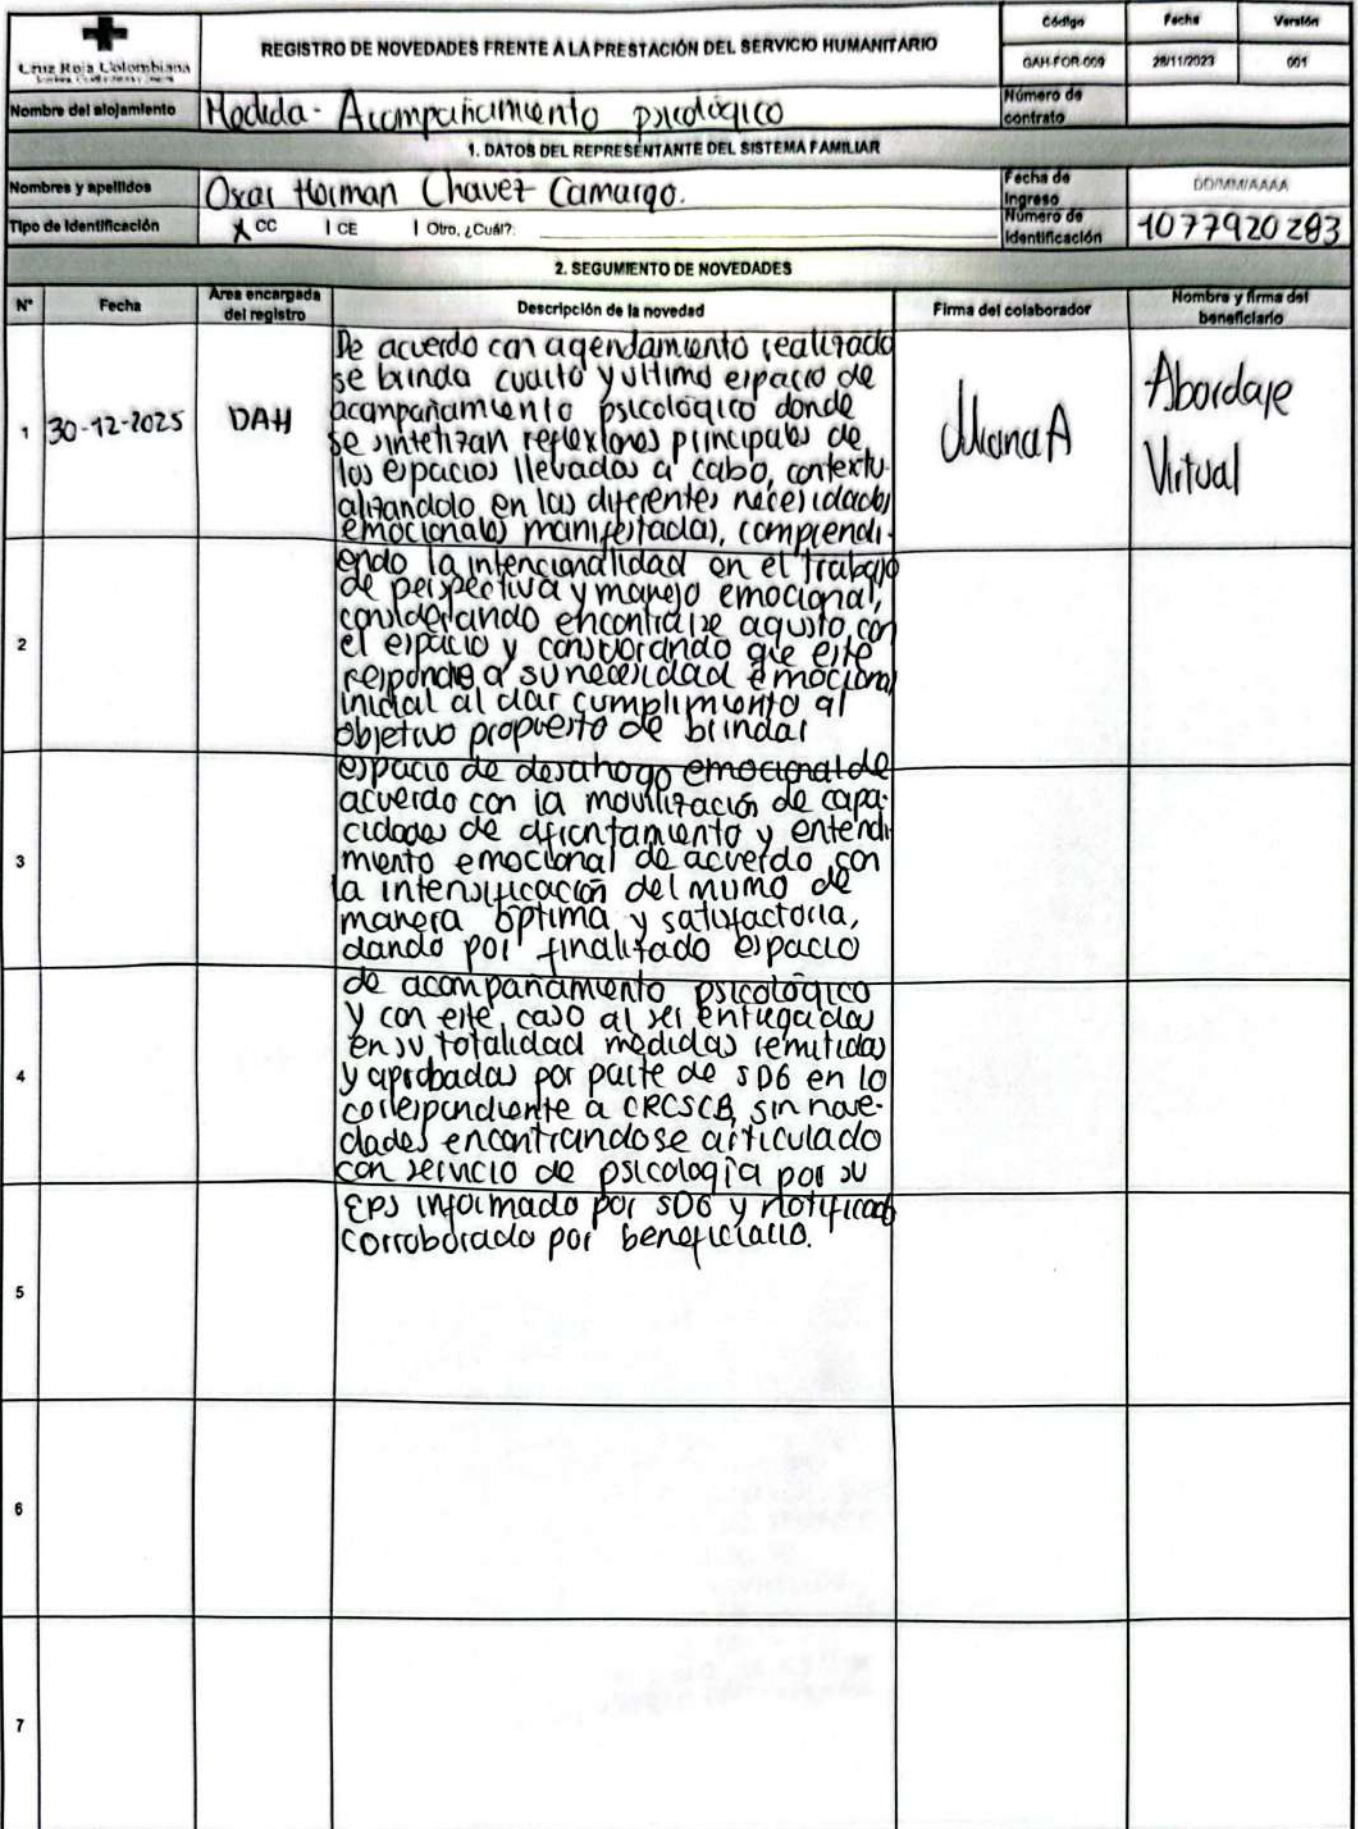 Cruz Roja Colombiana
REGISTRO DE NOVEDADES FRENTE A LA PRESTACIÓN DEL SERVICIO HUMANITARIO
Código
Fecha
Versión
GAH-FOR-009
28/11/2023
001
Nombre del alojamiento
Medida - Acompañamiento psicológico
Número de contrato
1. DATOS DEL REPRESENTANTE DEL SISTEMA FAMILIAR
Nombres y apellidos
Oscar Herman Chavez Camargo.
Fecha de Ingreso
DD/MM/AAAA
Tipo de Identificación
X CC
CE
Otro, ¿Cuál?:
Número de Identificación
1077920283
2. SEGUMIENTO DE NOVEDADES
N°
Fecha
Área encargada del registro
Descripción de la novedad
Firma del colaborador
Nombre y firma del beneficiario
1
30-12-2025
DAH
De acuerdo con agendamiento realizado
se brinda cuarto y ultimo espacio de
acompañamiento psicológico donde
se sintetizan reflexiones principales de
los espacios llevados a cabo, contextu-
alizandolo en las diferentes necesidades
emocionales manifestadas, comprendi-
Juliana A
Abordaje
Virtual
2
endo la intencionalidad en el trabajo
de perspectiva y manejo emocional,
considerando encontrarse agusto con
el espacio y considerando que este
responde a su necesidad emocional
inicial al dar cumplimiento al
objetivo propuesto de brindar
3
espacio de desahogo emocional de
acuerdo con la movilización de capa-
cidades de afrontamiento y entendi-
miento emocional de acuerdo con
la intensificación del mismo de
manera óptima y satisfactoria,
dando por finalizado espacio
4
de acompañamiento psicológico
y con este caso al ser entregadas
en su totalidad medidas remitidas
y aprobadas por parte de SDG en lo
correspondiente a CRCSCB, sin nove-
dades encontrandose articulado
con servicio de psicología por su
5
EPS informado por SDG y notificado
corroborado por beneficiario.
6
7